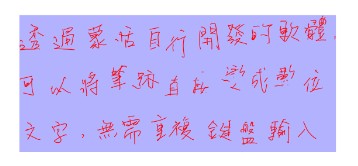 透過蒙恬自行開發的軟體,
可以將筆跡直接變成數位
文字,無需重複鍵盤輸入